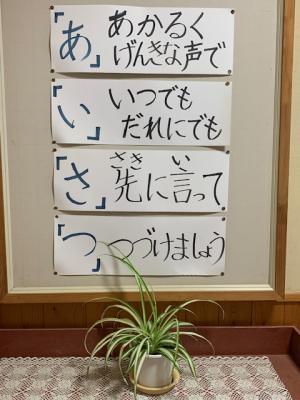 「あ」 あかるく
げんきな声で
「い」 いつでも
だれにでも
「さ」 先に言って
さき い
「つ」 つづけましょう